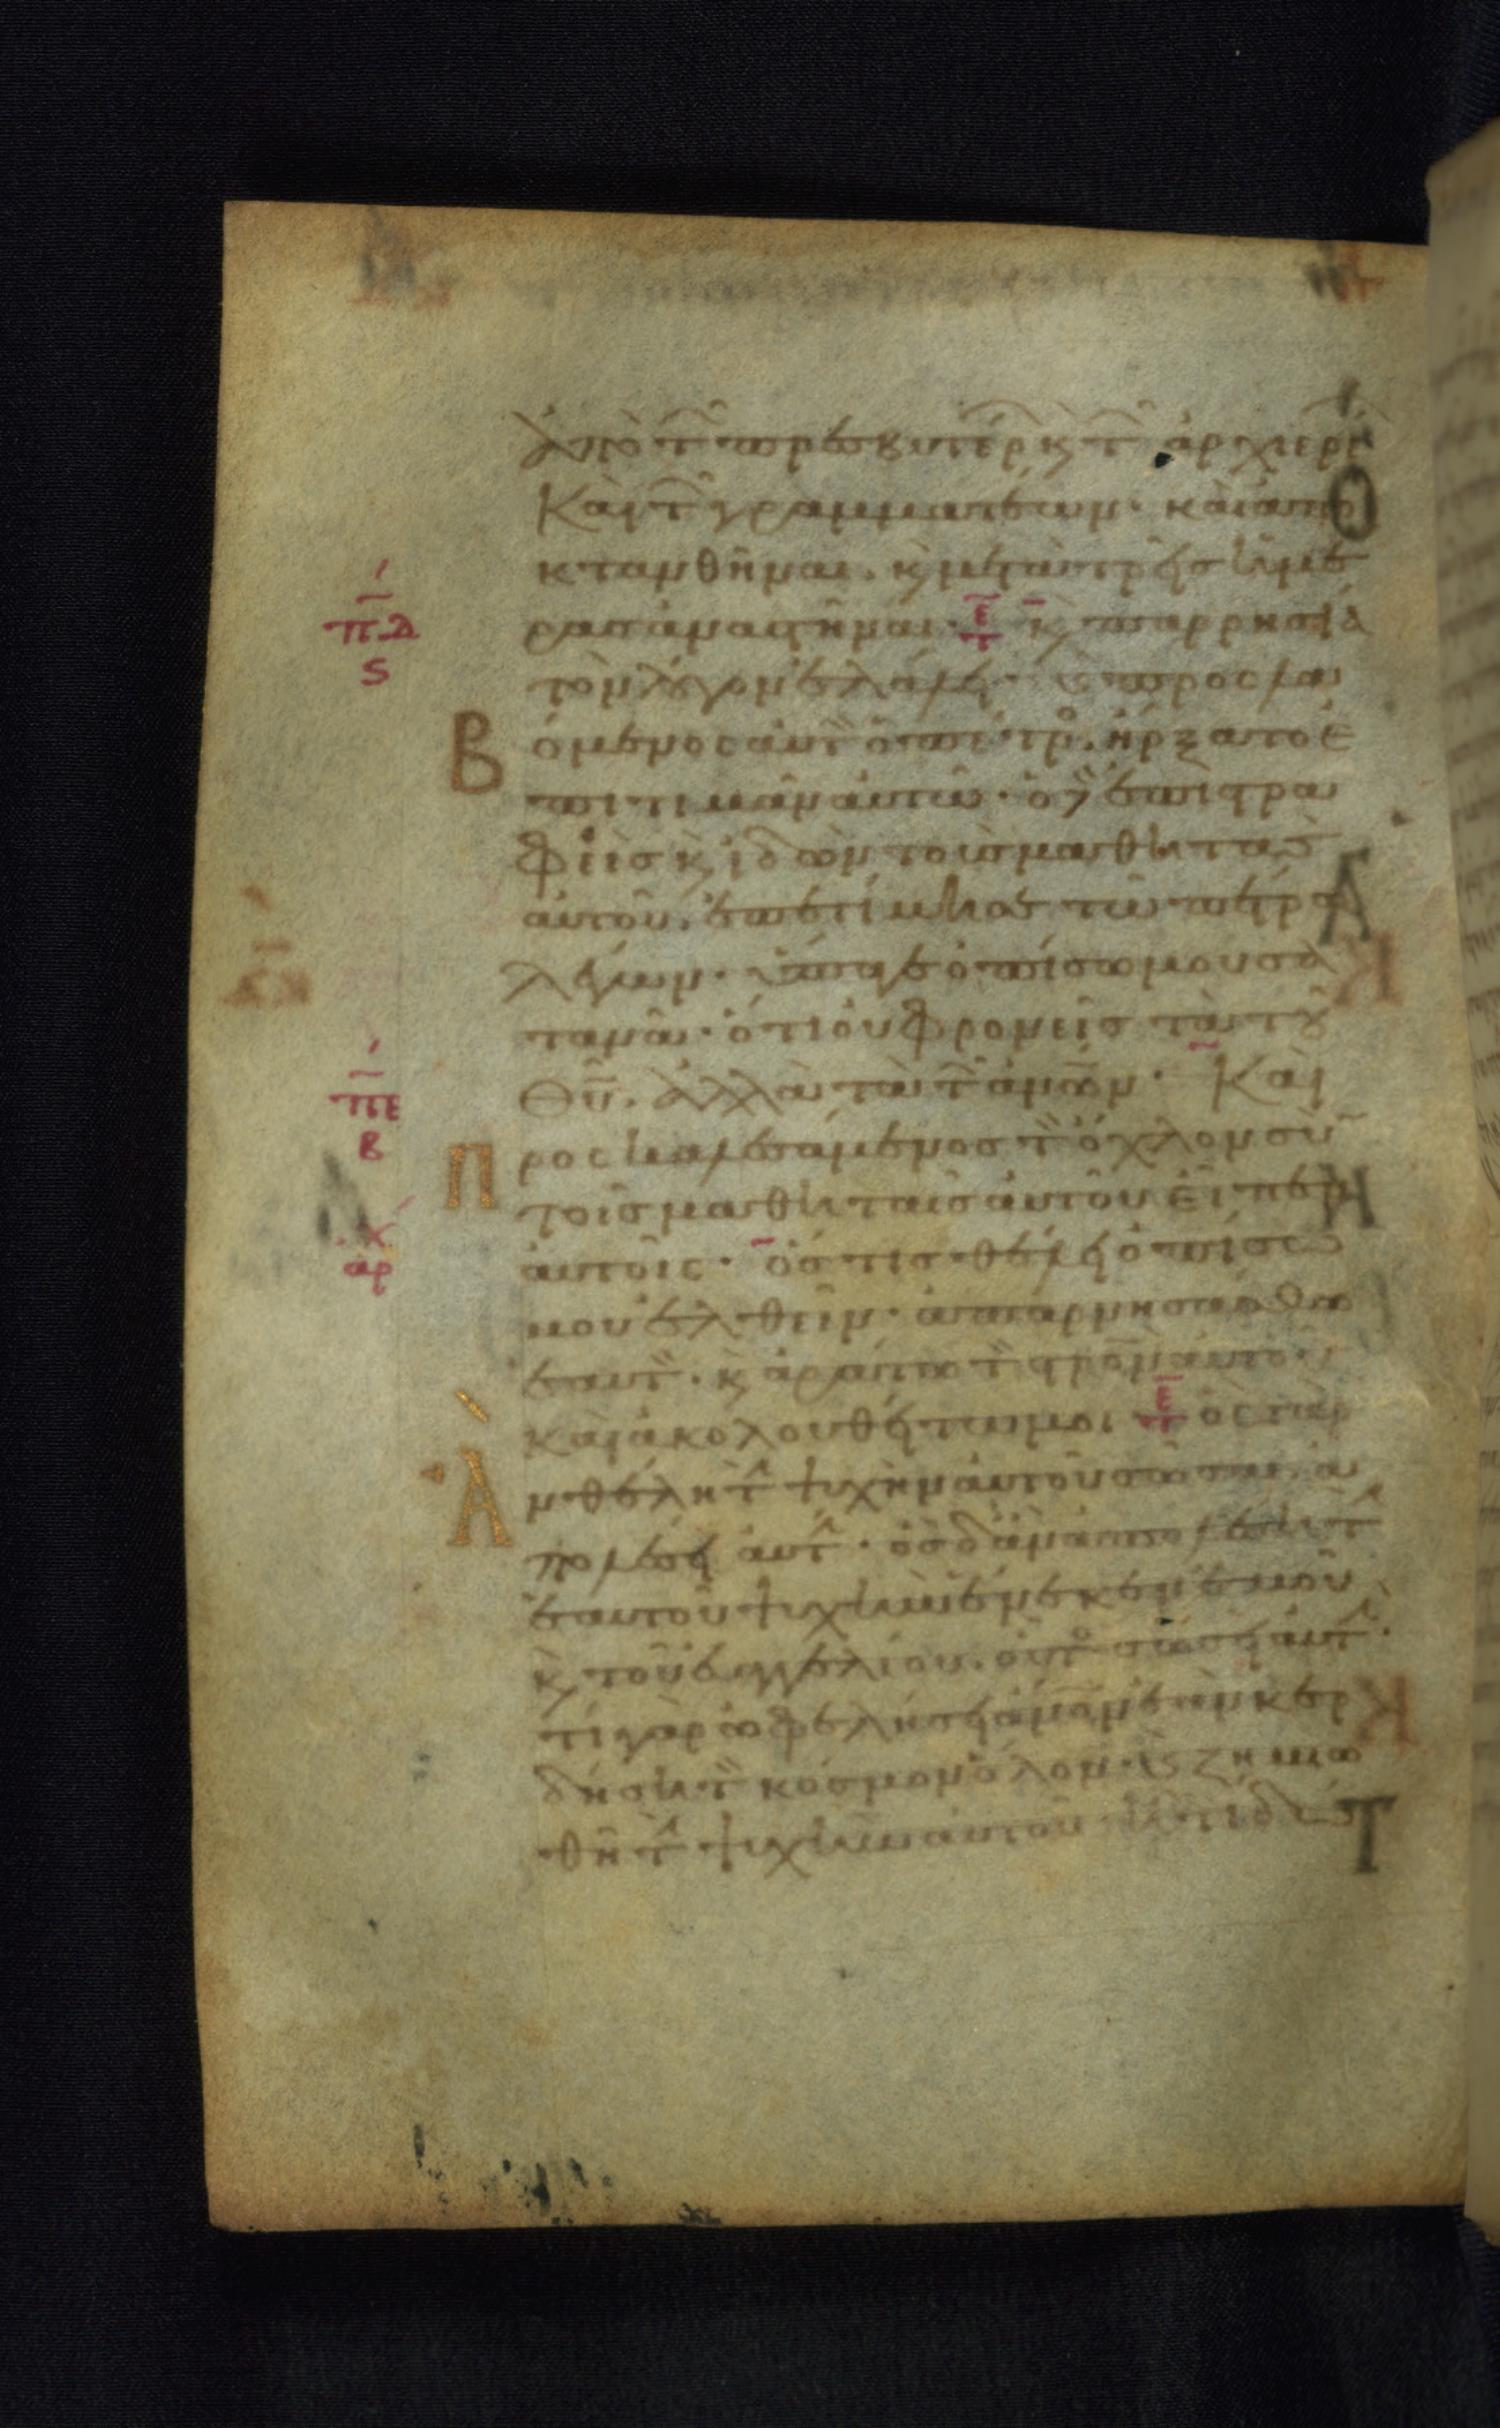 ἀπὸ τ̑ πρεσβυτέρ κ τ̑ ἀρχιερέ
Καὶ τ̑ γραμματέων· καὶ ἀπο
κτανθῆναι. κ μετὰ τρεῖς ἡμέ
π̅δ̅ ρας ἀναστῆναι· ε̅τ κ παρρησία
ς τὸν λόγον ἐλάλει· κ προσλα
Β όμενος αὐτ ὁ πέτρ. ἤρξατο ἐ
πιτιμᾶν αὐτῶ· ὁ δ ἐπιστρα
φεὶς κ ἰδὼν τοὺς μαθητὰς
αὐτοῦ. ἐπετίμησε τῶ πέτρω
λέγων· ὕπαγε ὀπίσω μου σα
τανᾶ· ὅτι οὐ φρονεῖς τὰ τοῦ
π̅ε̅ θ̅υ̅. ἀλλὰ τὰ τ̑ ἀν̅ω̅ν· Καὶ
β Π ροσκαλεσάμενος τ ὄχλον σὺν
τοῖς μαθηταῖς αὐτοῦ εἶπεν
αρχ αὐτοῖς· ὅστις θέλει ὀπίσω
μου ἐλθεῖν· ἀπαρνησάσθω
ἑαυτ. κ ἀράτω τ στρο̅ν αὐτοῦ
καὶ ἀκολουθείτω μοι ε̅τ ὃς γὰρ
Ἀ ν θέλη τ ψυχὴν αὐτοῦ σῶσαι. ἀ
πολέσει αὐτ· ὃς δ ἂν ἀπολέση τ
ἑαυτοῦ ψυχὴν ἕνεκεν ἐμοῦ
κ τοῦ εὐαγγελίου. οὗτ σώσει αὐτ·
τί γὰρ ὠφελήσει ἄν̅ο̅ν ἐὰν κερ
δήση τ κόσμον ὅλον· κ ζημιω
θῆ τ ψυχὴν αὐτοῦ· ἢ τί δώσ